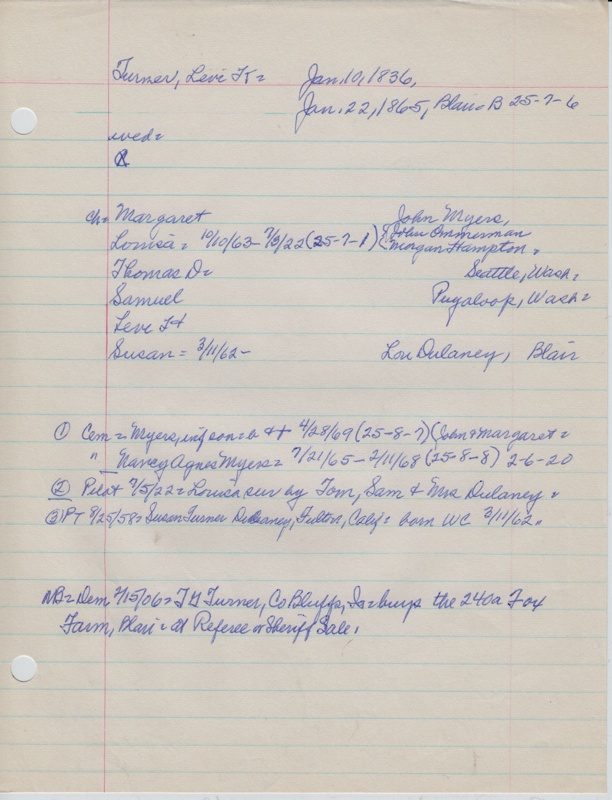 Turner, Levi K= Jan. 10, 1836,
Jan. 22, 1865, Blair=B 25-7-6
wed=
ch= Margaret John Myers,
Louisa = 10/10/63- 7/3/22 (25-7-1) { John Ommerman
Morgan Hampton =
Thomas D= Seattle, Wash=
Samuel Puyaloop, Wash=
Levi
Susan = 3/11/62- Lou Dulaney, Blair
① Cem = Myers, inf son = b & + 4/28/69 (25-8-7) (John & Margaret =
" Nancy Agnes Myers = 7/21/65 - 2/11/68 (25-8-8) 2-6-20
② Pilot 7/5/22 = Louisa sur by Tom, Sam & Mrs Dulaney =
③ PT 9/25/58 = Susan Turner Dulaney, Fulton, Calif = born WC 3/11/62 "
NB = Dem 2/15/06 = Turner, Co Bluffs, Ia = buys the 240a Fox
Farm, Blair = at Referee or Sheriff Sale.